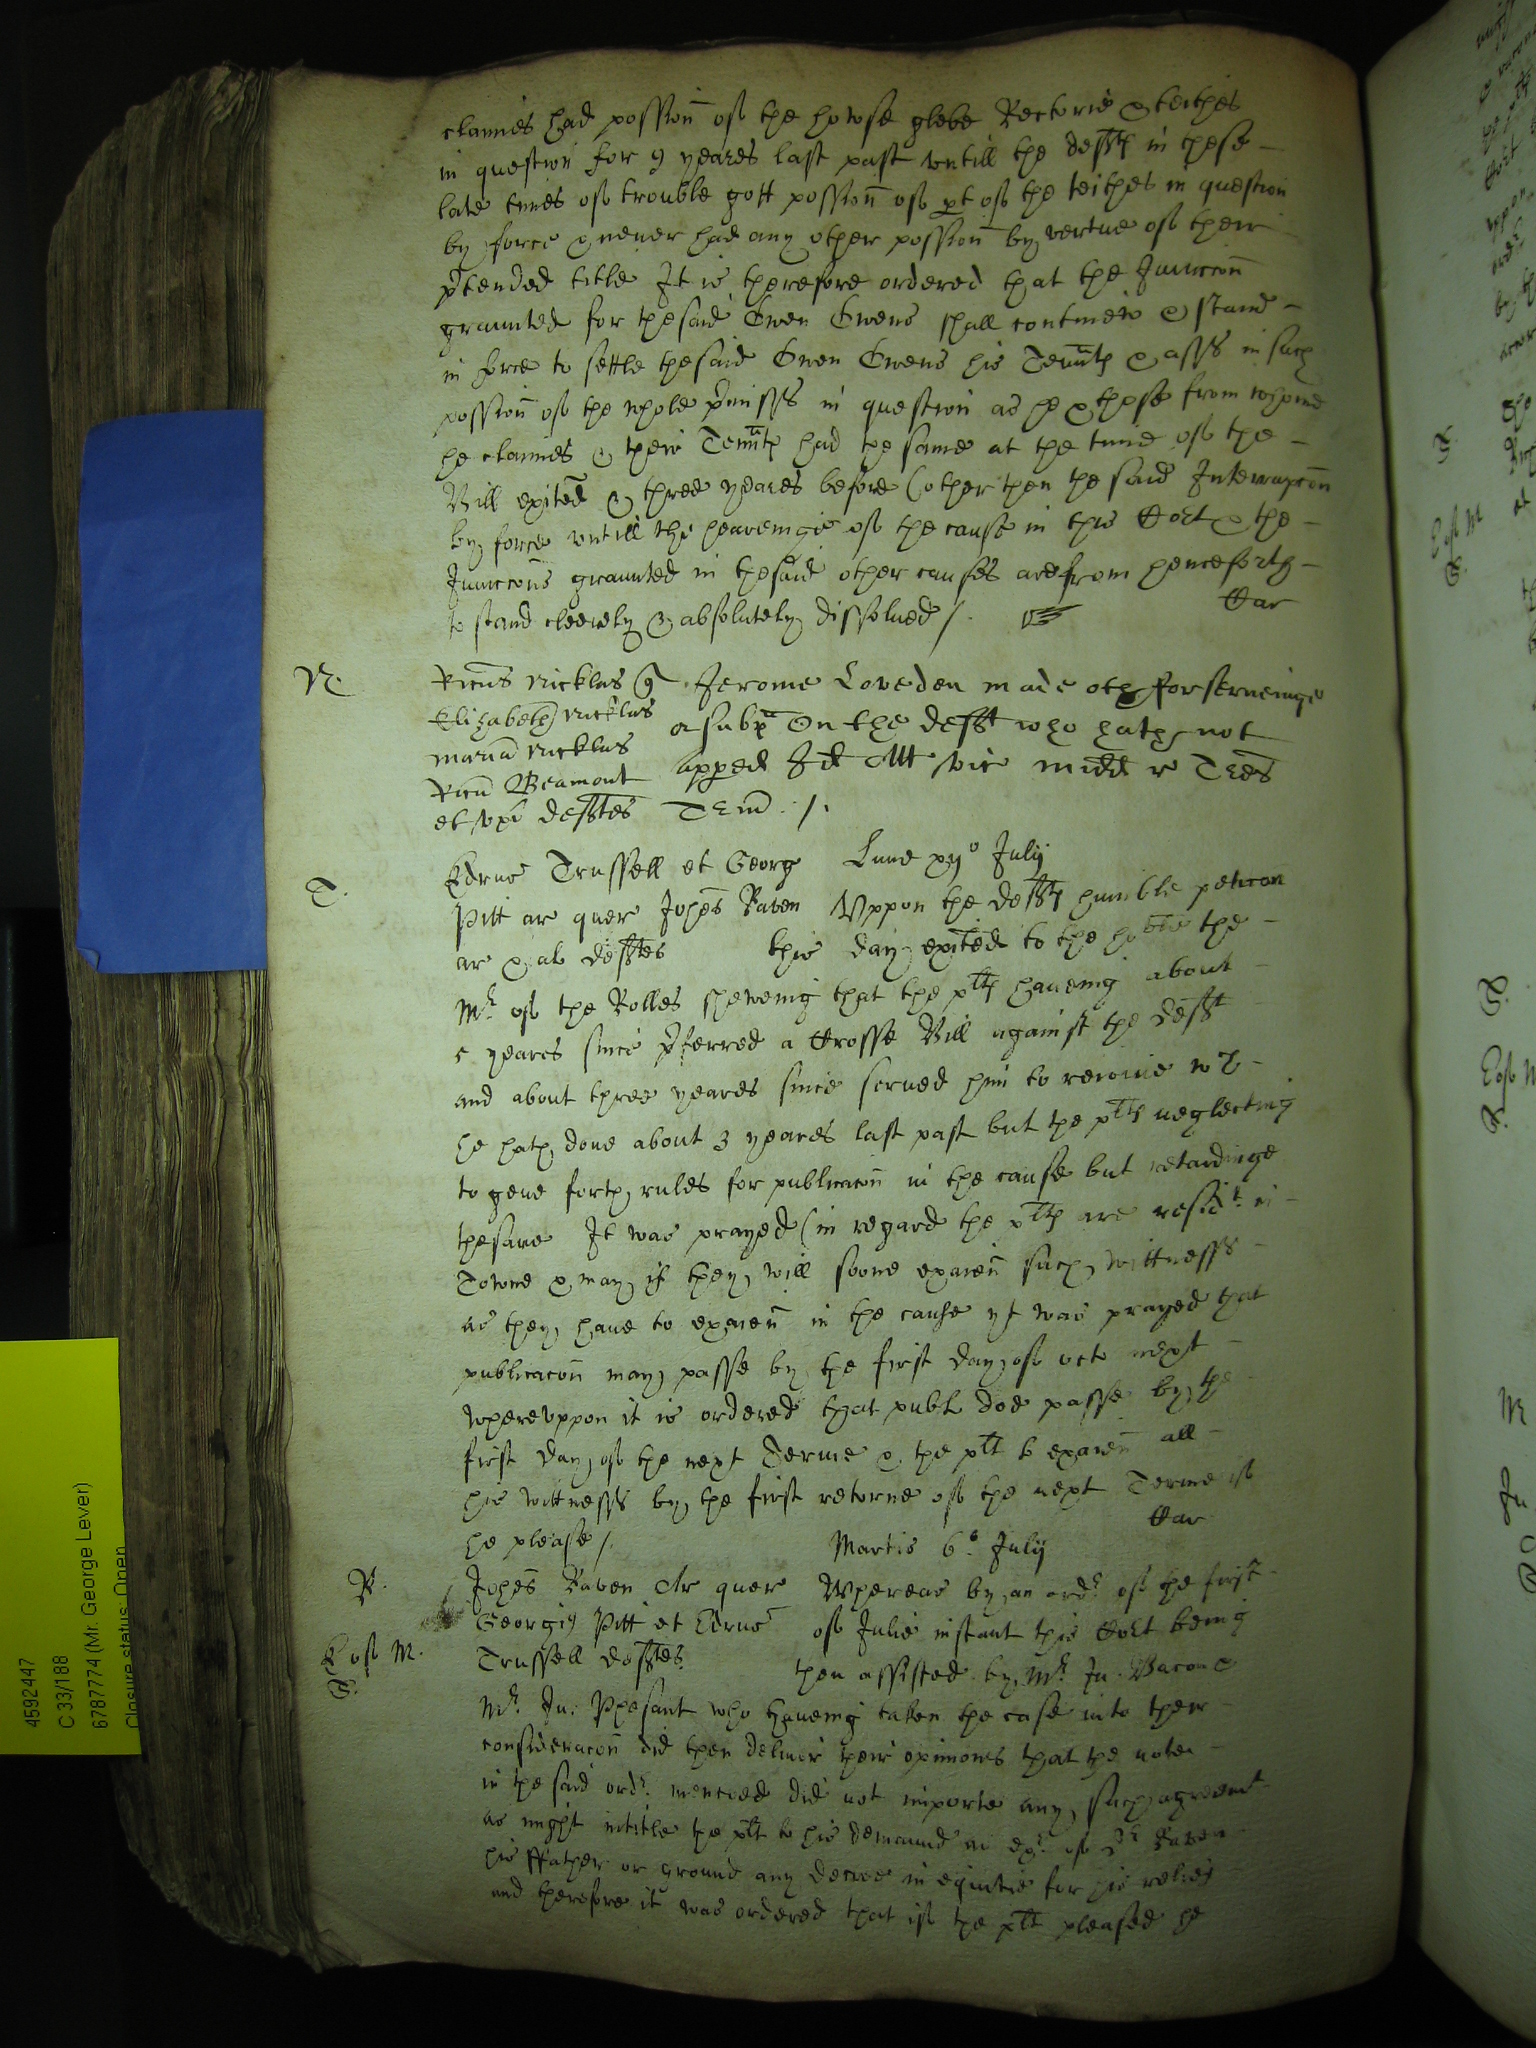 claimes had possion of the howse glebe Rectorie & teithes
in question for 9 yeares last past untill the defts in these
late times of trouble gott possion of pt of the teithes in question
by force & never had any other possion by vertue of their
ptended title It is therefore ordered that the Iniuccon
graunted for the said Owen Owens shall continew & stand
in force to settle the said Owen Owens his Tennts & asss in such
possion of the whole pmisss in question as he & those from whome
he claimes & their Tennts had the same at the time of the
Bill exited & three yeares before (other then the said Interrupcon
by force untill the heareinge of the cause in this Cort & the
Iniuccons graunted in the said other causes are from henceforth
to stand cleerely & absolutely dissolued /.
Car
N.
Ricus Nicklas q Jerome Loveden made oth for serveinge
Elizabeth Nicklas a subp on the deft who hath not
Maria Nicklas
apped Id Att vic Midd r Tres
Ricu Beamont
et uxr deftes Trin ./.
T.
Edrus Trussell et Georg Lune xijo July
Pitt ar quer Johes Raven Uppon the defts humble peticon
ar & al deftes this day exited to the hoble the
Mr of the Rolles shewing that the plts haueing about
5 yeares since pferred a Crosse Bill against the deft
and about three yeares since serued him to reioine wch
he hath done about 3 yeares last past but the plts neglecting
to geue forth rules for publicacon in the cause but retardinge
the same It was prayed (in regard the plts are resident in
Towne & may if they will soone examn such wittnesss
as they haue to examn in the cause yt was prayed that
publicacon may passe by the first day of octo next
whereuppon it is ordered that publ doe passe by the
first day of the next Terme & the plt to examn all
his wittnesss by the first retorne of the next Terme if
he please /.
Car
Martis 6o July
R.
Johes Raven Ar quer Whereas by an ordr of the first
Georgiq Pitt et Edrus of Julie instant this Cort being
Eod M.
Trussell deftes. then assisted by Mr Ju: Bacon &
T.
Mr Ju: Phesant who haueing taken the case into their
consideracon did then deliuer their opinions that the note
in the said ordr menconed did not importe any such agreemt
as might intitle the plt to his demaund as exr of Raven
his ffather or ground any decree in equitie for his relief
and therefore it was ordered that if the plt pleased he
4592447
C 33/188
6787774 (Mr. George Lever)
Closure status: Open